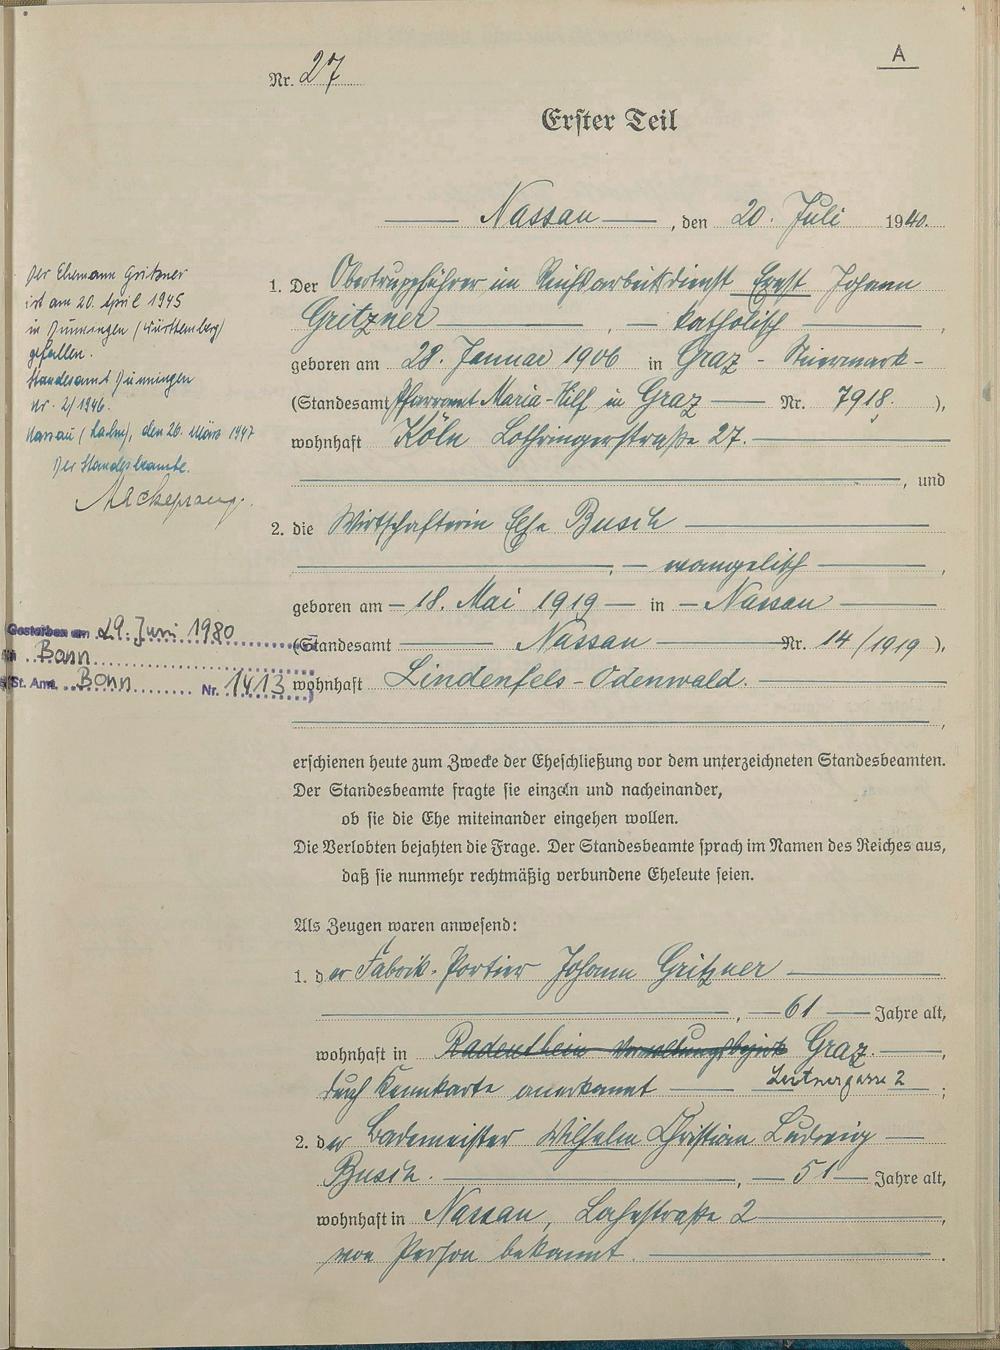 A
Nr. 27
Erster Teil
Nassau, den 20. Juli 1940.
1. Der Obertruppführer im Reichsarbeitsdienst Ernst Johann
Gritzner, katholisch,
geboren am 28. Januar 1906 in Graz - Steiermark -
(Standesamt Pfarramt Maria-Hilf in Graz Nr. 7918.),
wohnhaft Köln Lothringerstraße 27.
, und
2. die Wirtschafterin Else Busch
, evangelisch,
geboren am 18. Mai 1919 in Nassau
(Standesamt Nassau Nr. 14/1919),
wohnhaft Lindenfels-Odenwald.
,
erschienen heute zum Zwecke der Eheschließung vor dem unterzeichneten Standesbeamten.
Der Standesbeamte fragte sie einzeln und nacheinander,
ob sie die Ehe miteinander eingehen wollen.
Die Verlobten bejahten die Frage. Der Standesbeamte sprach im Namen des Reiches aus,
daß sie nunmehr rechtmäßig verbundene Eheleute seien.
Als Zeugen waren anwesend:
1. der Fabrik-Portier Johann Gritzner
, 61 Jahre alt,
wohnhaft in Radenthein Verwaltungsbezirk Graz.,
Leitnergasse 2
durch Kennkarte anerkannt;
2. der Bademeister Wilhelm Christian Ludwig
Busch., 51 Jahre alt,
wohnhaft in Nassau, Lahnstraße 2,
von Person bekannt.
Der Ehemann Gritzner
ist am 20. April 1945
in Dunningen (Württemberg)
gefallen.
Standesamt Dunningen
Nr. 2/1946.
Nassau (Lahn), den 26. März 1947
Der Standesbeamte.
Gestorben am 29. Juni 1980
in Bonn
St. Amt. Bonn Nr. 1413